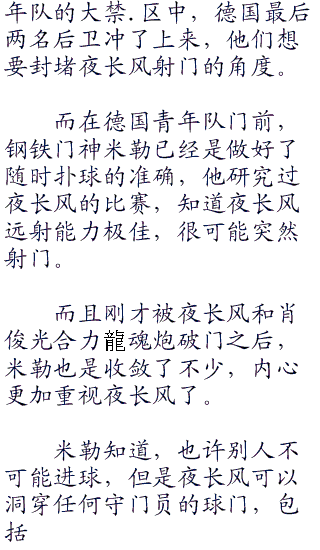 年队的大禁.区中，德国最后
两名后卫冲了上来，他们想
要封堵夜长风射门的角度。
而在德国青年队门前，
钢铁门神米勒已经是做好了
随时扑球的准确，他研究过
夜长风的比赛，知道夜长风
远射能力极佳，很可能突然
射门。
而且刚才被夜长风和肖
俊光合力龍魂炮破门之后，
米勒也是收敛了不少，内心
更加重视夜长风了。
米勒知道，也许别人不
可能进球，但是夜长风可以
洞穿任何守门员的球门，包
括